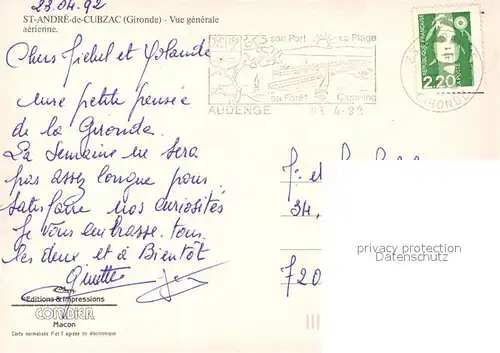 23.04.92
ST-ANDRÉ-de-CUBZAC (Gironde) - Vue générale
aérienne.
Chers Michel et Yolande
Une petite pensée
de la Gironde.
La Semaine ne sera
pas assez longue pour
satisfaire nos curiosités
Je vous embrasse tous
les deux et à Bientôt
Ginette
son Port sa Plage
sa Forêt Camping
AUDENGE 23 4-92
GIRONDE
REPUBLIQUE FRANÇAISE
2,20
LA POSTE
J. et
34,
720
privacy protection
Datenschutz
Editions & Impressions
COMBIER
Macon
Carte normalisée P et T agréée tri électronique